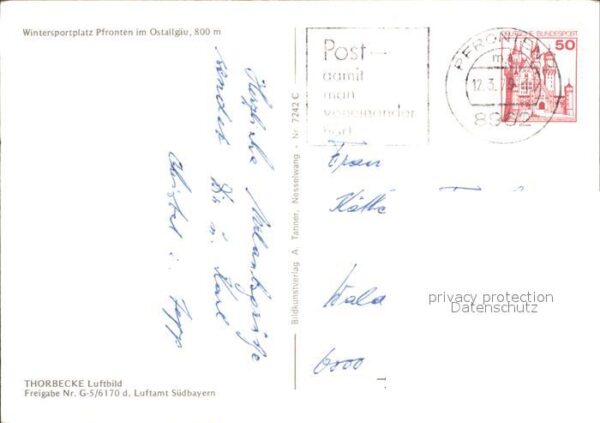 Wintersportplatz Pfronten im Ostallgäu, 800 m
Herzliche Urlaubsgrüße
sendet Dir u. Karl
Christel u. Sepp
THORBECKE Luftbild
Freigabe Nr. G-5/6170 d, Luftamt Südbayern
Bildkunstverlag A. Tanner, Nesselwang - Nr. 7242 C
Post -
damit
man
voneinander
hört
PFRONTEN
12.3.79
8962
DEUTSCHE BUNDESPOST
50
Frau
Käthe
6000
privacy protection
Datenschutz